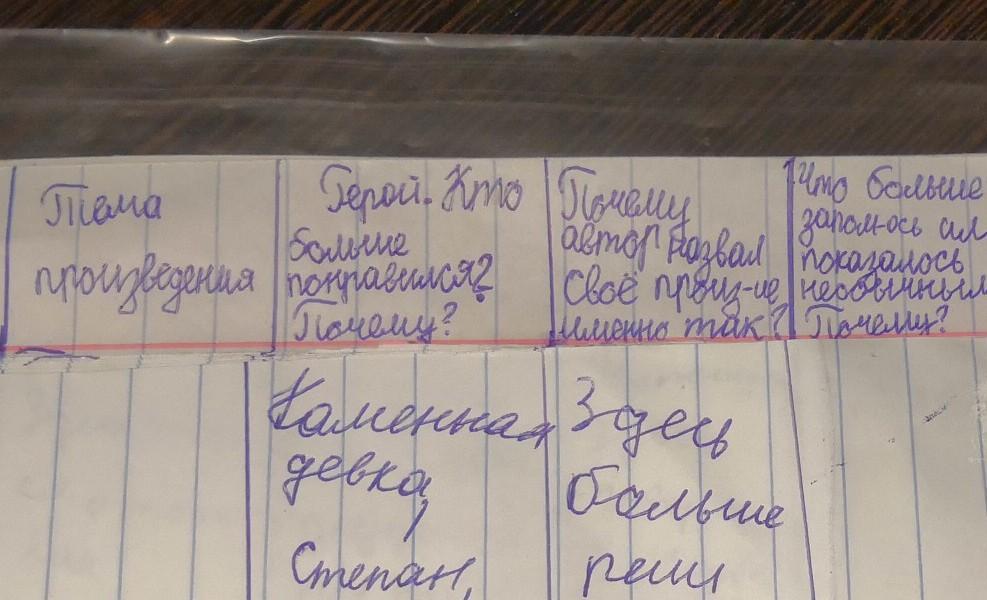 Тема
произведения
Герой. Кто
больше
понравился?
Почему?
Почему
автор назвал
своё произ-ие
именно так?
Что больше
запом-ось ил
показалось
необычным
Почему?
Каменная
девка,
Степан,
Здесь
больше
реши